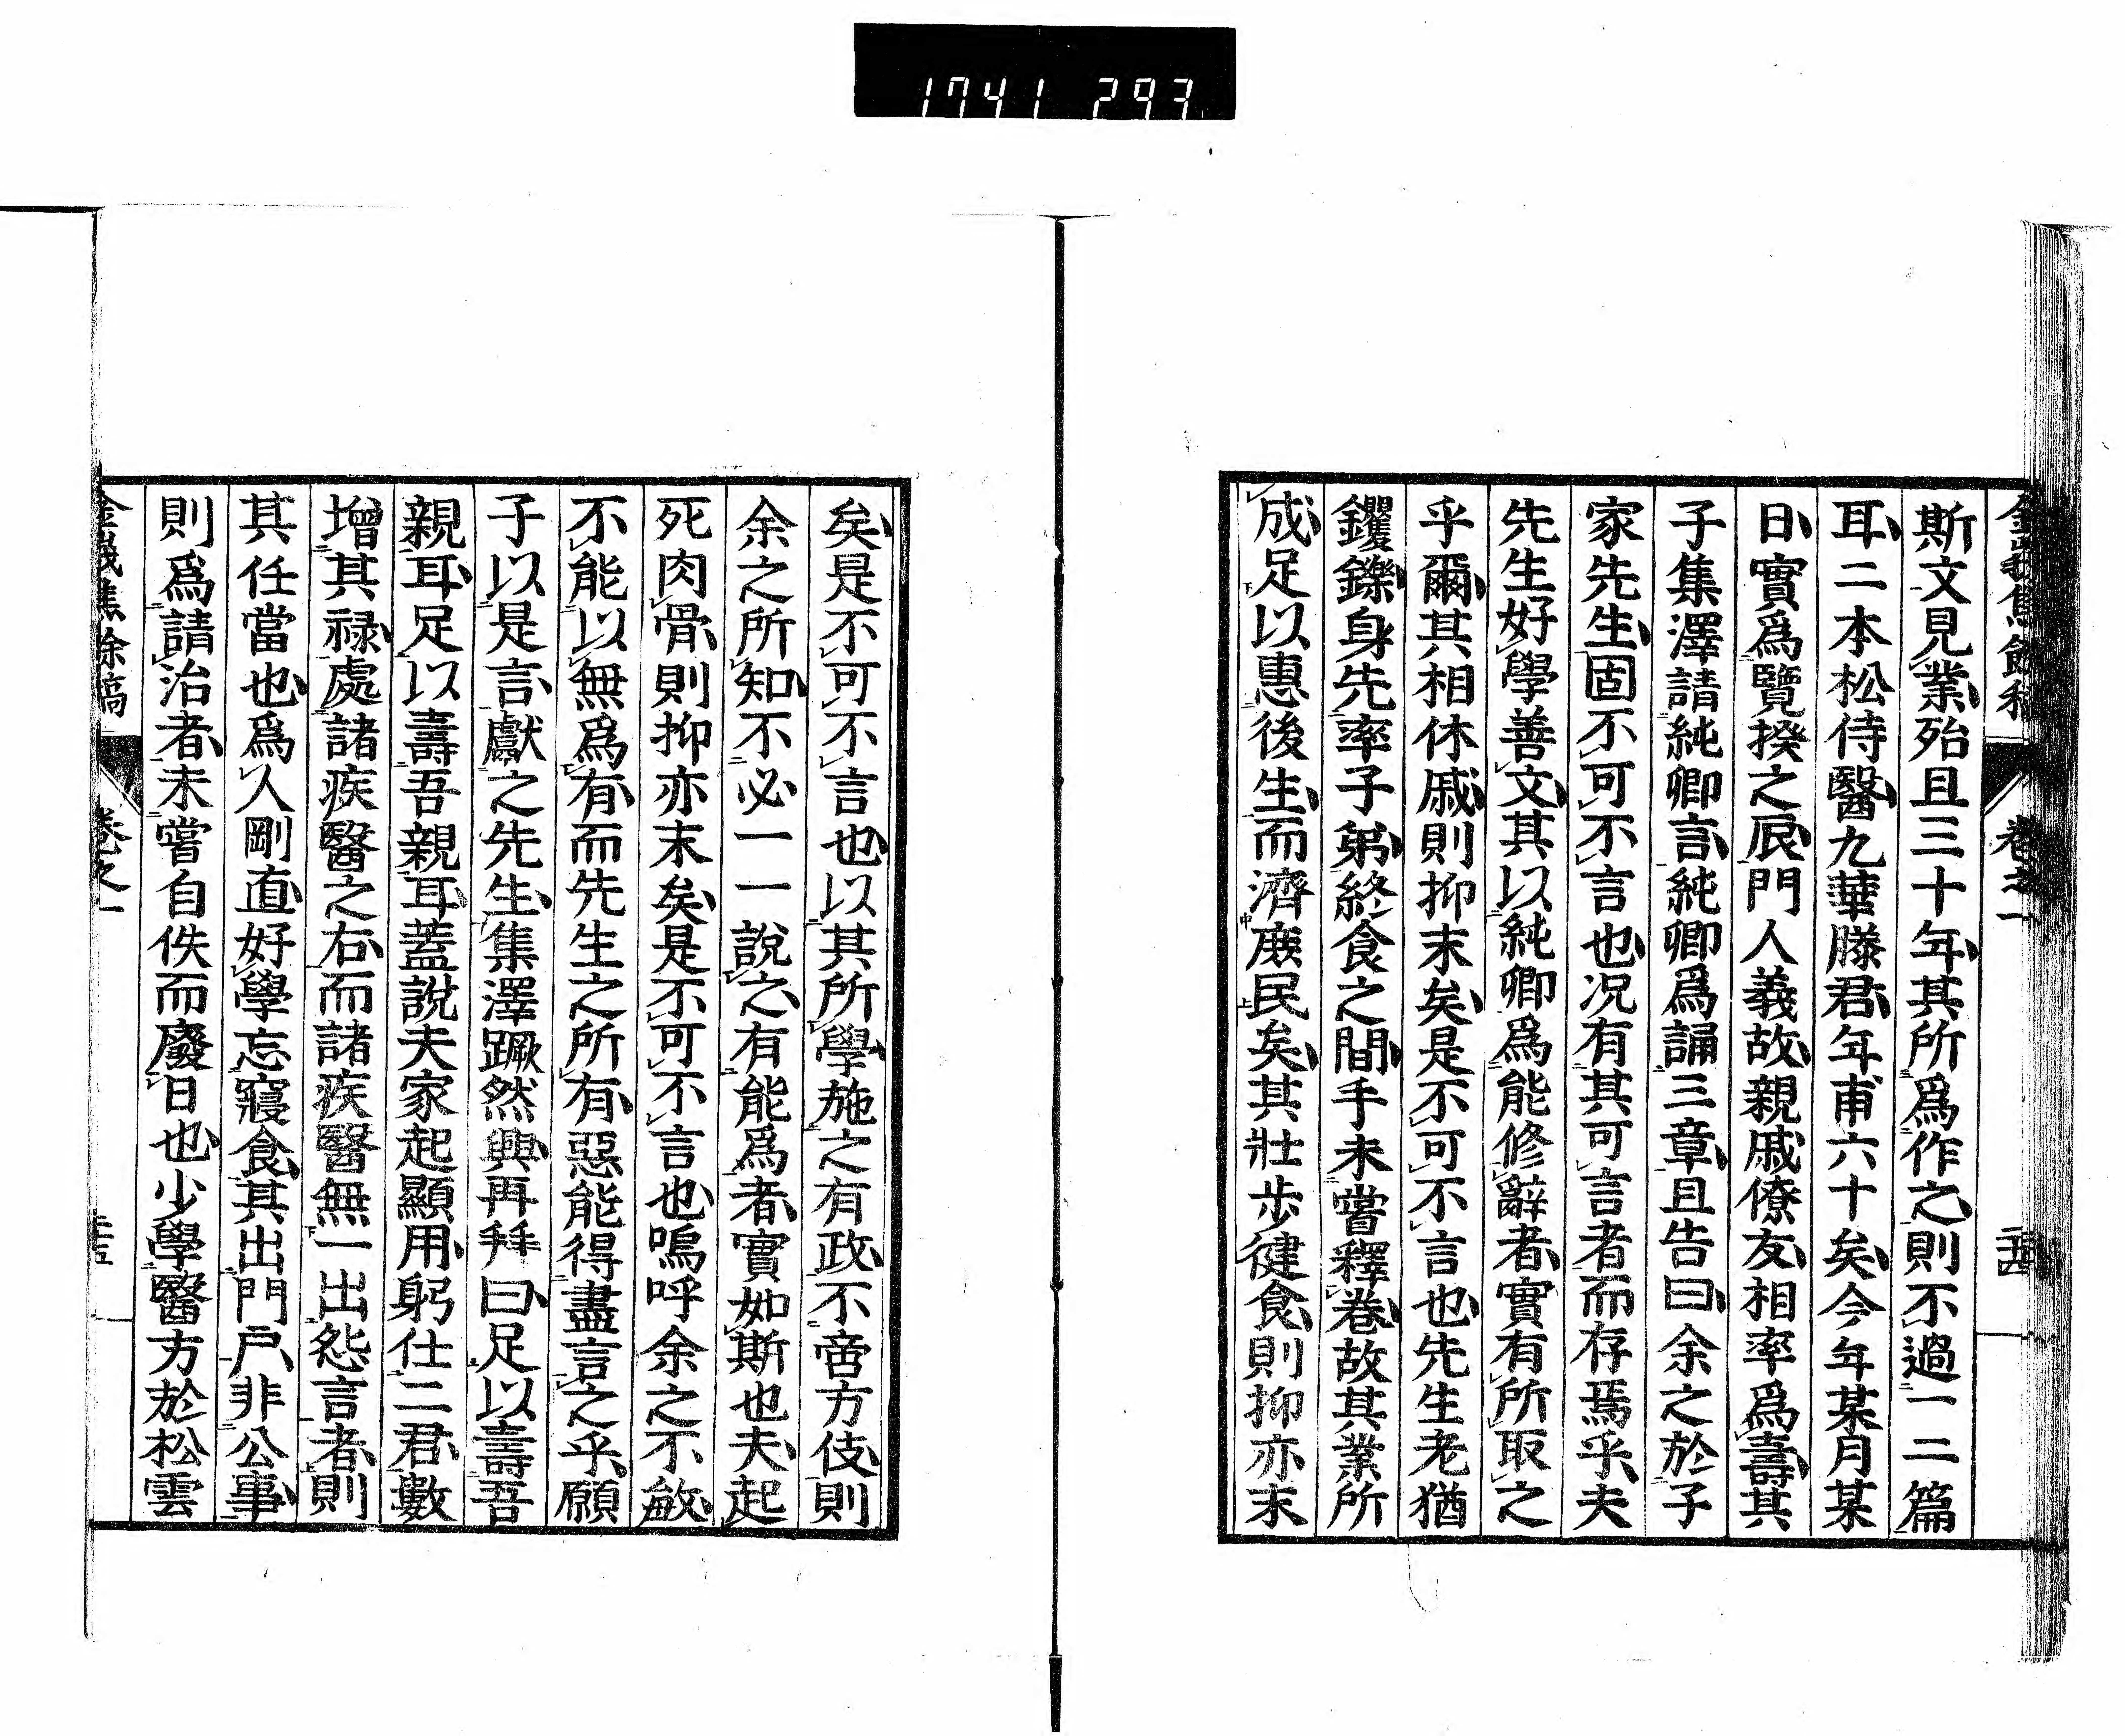 1741 293
斯文見業殆且三十年其所爲作之則不過一二篇
耳二本松侍醫九華滕君年甫六十矣今年某月某
日實爲覽揆之辰門人義故親戚僚友相率爲壽其
子集澤請純卿言純卿爲誦三章且告曰余之於子
家先生固不可不言也况有其可言者而存焉乎夫
先生好學善文其以純卿爲能修辭者實有所取之
乎爾其相休戚則抑末矣是不可不言也先生老猶
钁鑠身先率子弟終食之間手未嘗釋卷故其業所
成足以惠後生而濟廢民矣其壯步健食則抑亦末
矣是不可不言也以其所學施之有政不啻方伎則
余之所知不必一一說之有能爲者實如斯也夫起
死肉骨則抑亦末矣是不可不言也嗚呼余之不敏
不能以無爲有而先生之所有惡能得盡言之乎願
子以是言獻之先生集澤蹶然興再拜曰足以壽吾
親耳足以壽吾親耳蓋說夫家起顯用躬仕二君數
增其禄處諸疾醫之右而諸疾醫無一出怨言者則
其任當也爲人剛直好學忘寢食其出門戸非公事
則爲請治者未嘗自佚而廢日也少學醫方於松雲
卷之一